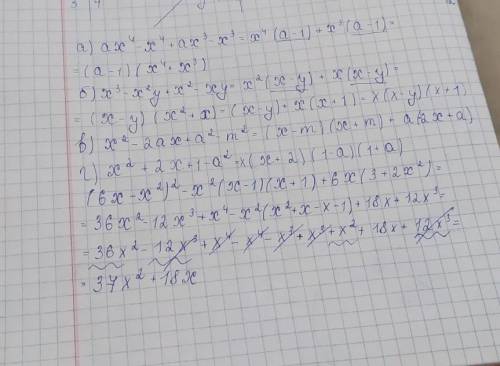 3 | 4
а) ax⁴ - x⁴ + ax³ - x³ = x⁴ (a-1) + x³ (a-1) =
= (a-1) (x⁴ + x³)
б) x³ - x²y + x² - xy = x² (x-y) + x (x-y) =
= (x-y) (x² + x) - (x-y) + x (x+1) - x (x-y) (x+1)
в) x² - 2ax + a² - m² = (x-m) (x+m) + a(2x+a)
г) x² + 2x + 1 - a² = x (x+2) (1-a) (1+a)
(6x - x²)² - x² (x-1) (x+1) + 6x (3 + 2x²) =
= 36x² - 12x³ + x⁴ - x² (x² + x - x - 1) + 18x + 12x³ =
= 36x² - 12x³ + x⁴ - x⁴ - x³ + x³ + x² + 18x + 12x³ =
= 37x² + 18x